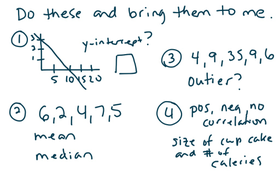 Do these and bring them to me.
① y-intercept?
3
2
1
5 10 15 20
③ 4, 9, 35, 9, 6
outier?
② 6, 2, 4, 7, 5
mean
median
④ pos, neg, no
correlation
size of cup cake
and # of
caleries